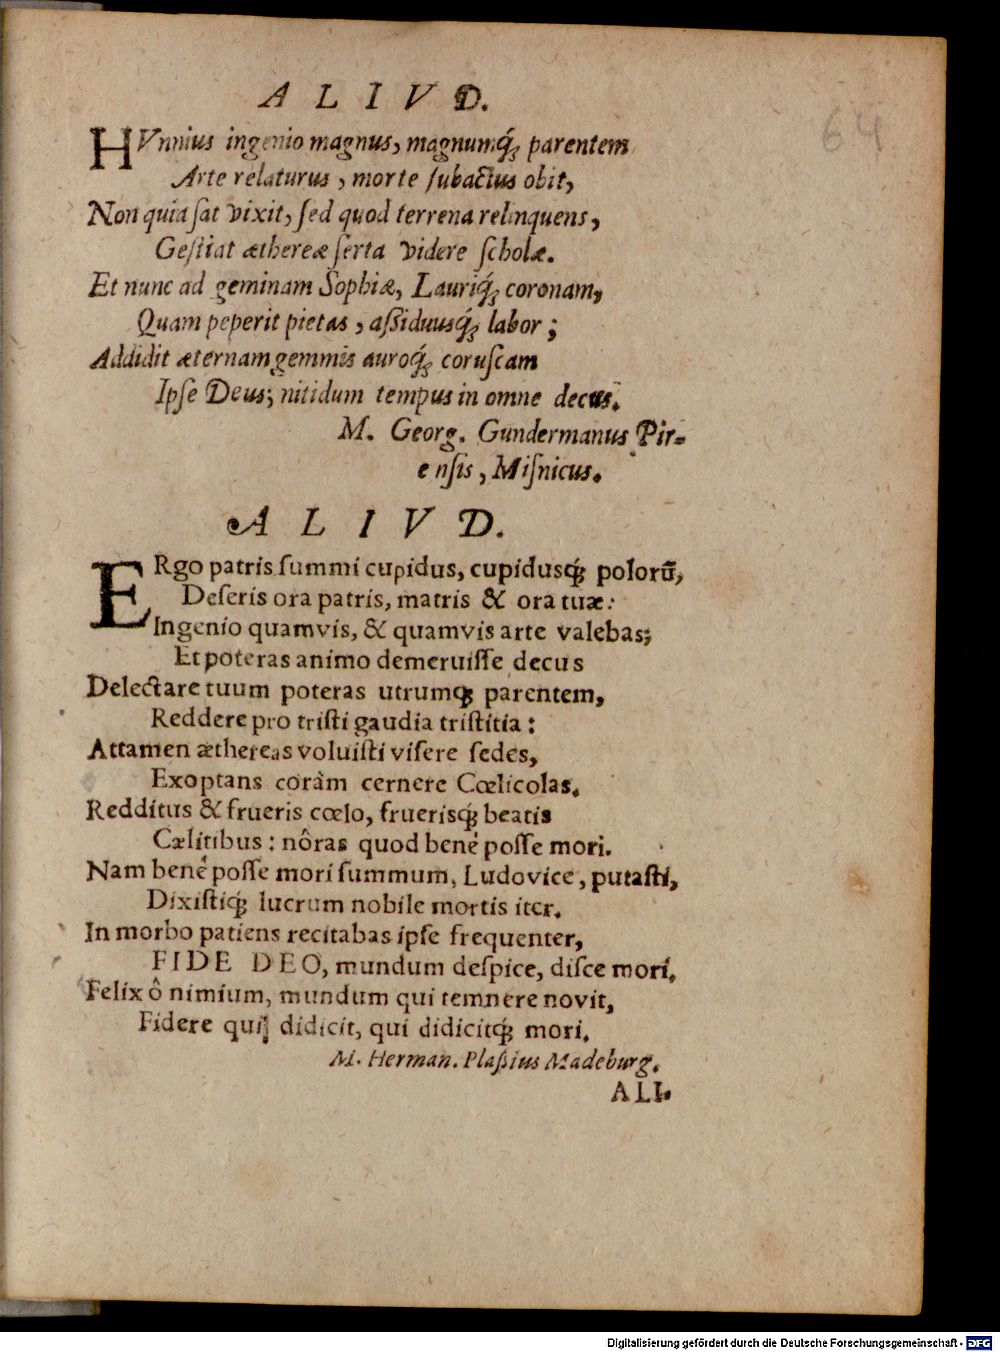 64
ALIVD.
HVnnius ingenio magnus, magnumq́; parentem
Arte relaturus, morte ſubactus obit,
Non quia ſat vixit, ſed quod terrena relinquens,
Geſtiat æthereæ ſerta videre ſcholæ.
Et nunc ad geminam Sophiæ, Lauriq́; coronam,
Quam peperit pietas, aſſiduusq́; labor;
Addidit æternam gemmis auroq́; coruſcam
Ipſe Deus; nitidum tempus in omne decus.
M. Georg. Gundermanus Pir-
enſis, Miſnicus.
ALIVD.
ERgo patris ſummi cupidus, cupidusq́; polorū,
Deſeris ora patris, matris & ora tuæ:
Ingenio quamvis, & quamvis arte valebas;
Et poteras animo demeruiſſe decus
Delectare tuum poteras utrumq; parentem,
Reddere pro triſti gaudia triſtitia:
Attamen æthereas voluiſti viſere ſedes,
Exoptans coràm cernere Cœlicolas.
Redditus & frueris cœlo, fruerisq́; beatis
Cælitibus: nôras quod benè poſſe mori.
Nam benè poſſe mori ſummum, Ludovice, putaſti,
Dixiſtiq́; lucrum nobile mortis iter.
In morbo patiens recitabas ipſe frequenter,
FIDE DEO, mundum deſpice, diſce mori.
Felix ô nimium, mundum qui temnere novit,
Fidere quiq; didicit, qui didicitq́; mori.
M. Herman. Plaſſius Madeburg.
ALI-
Digitalisierung gefördert durch die Deutsche Forschungsgemeinschaft - DFG